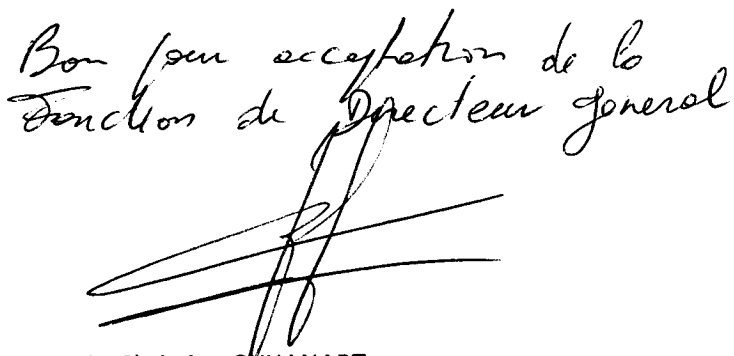 Bon pour acceptation de la
Fonction de Directeur general